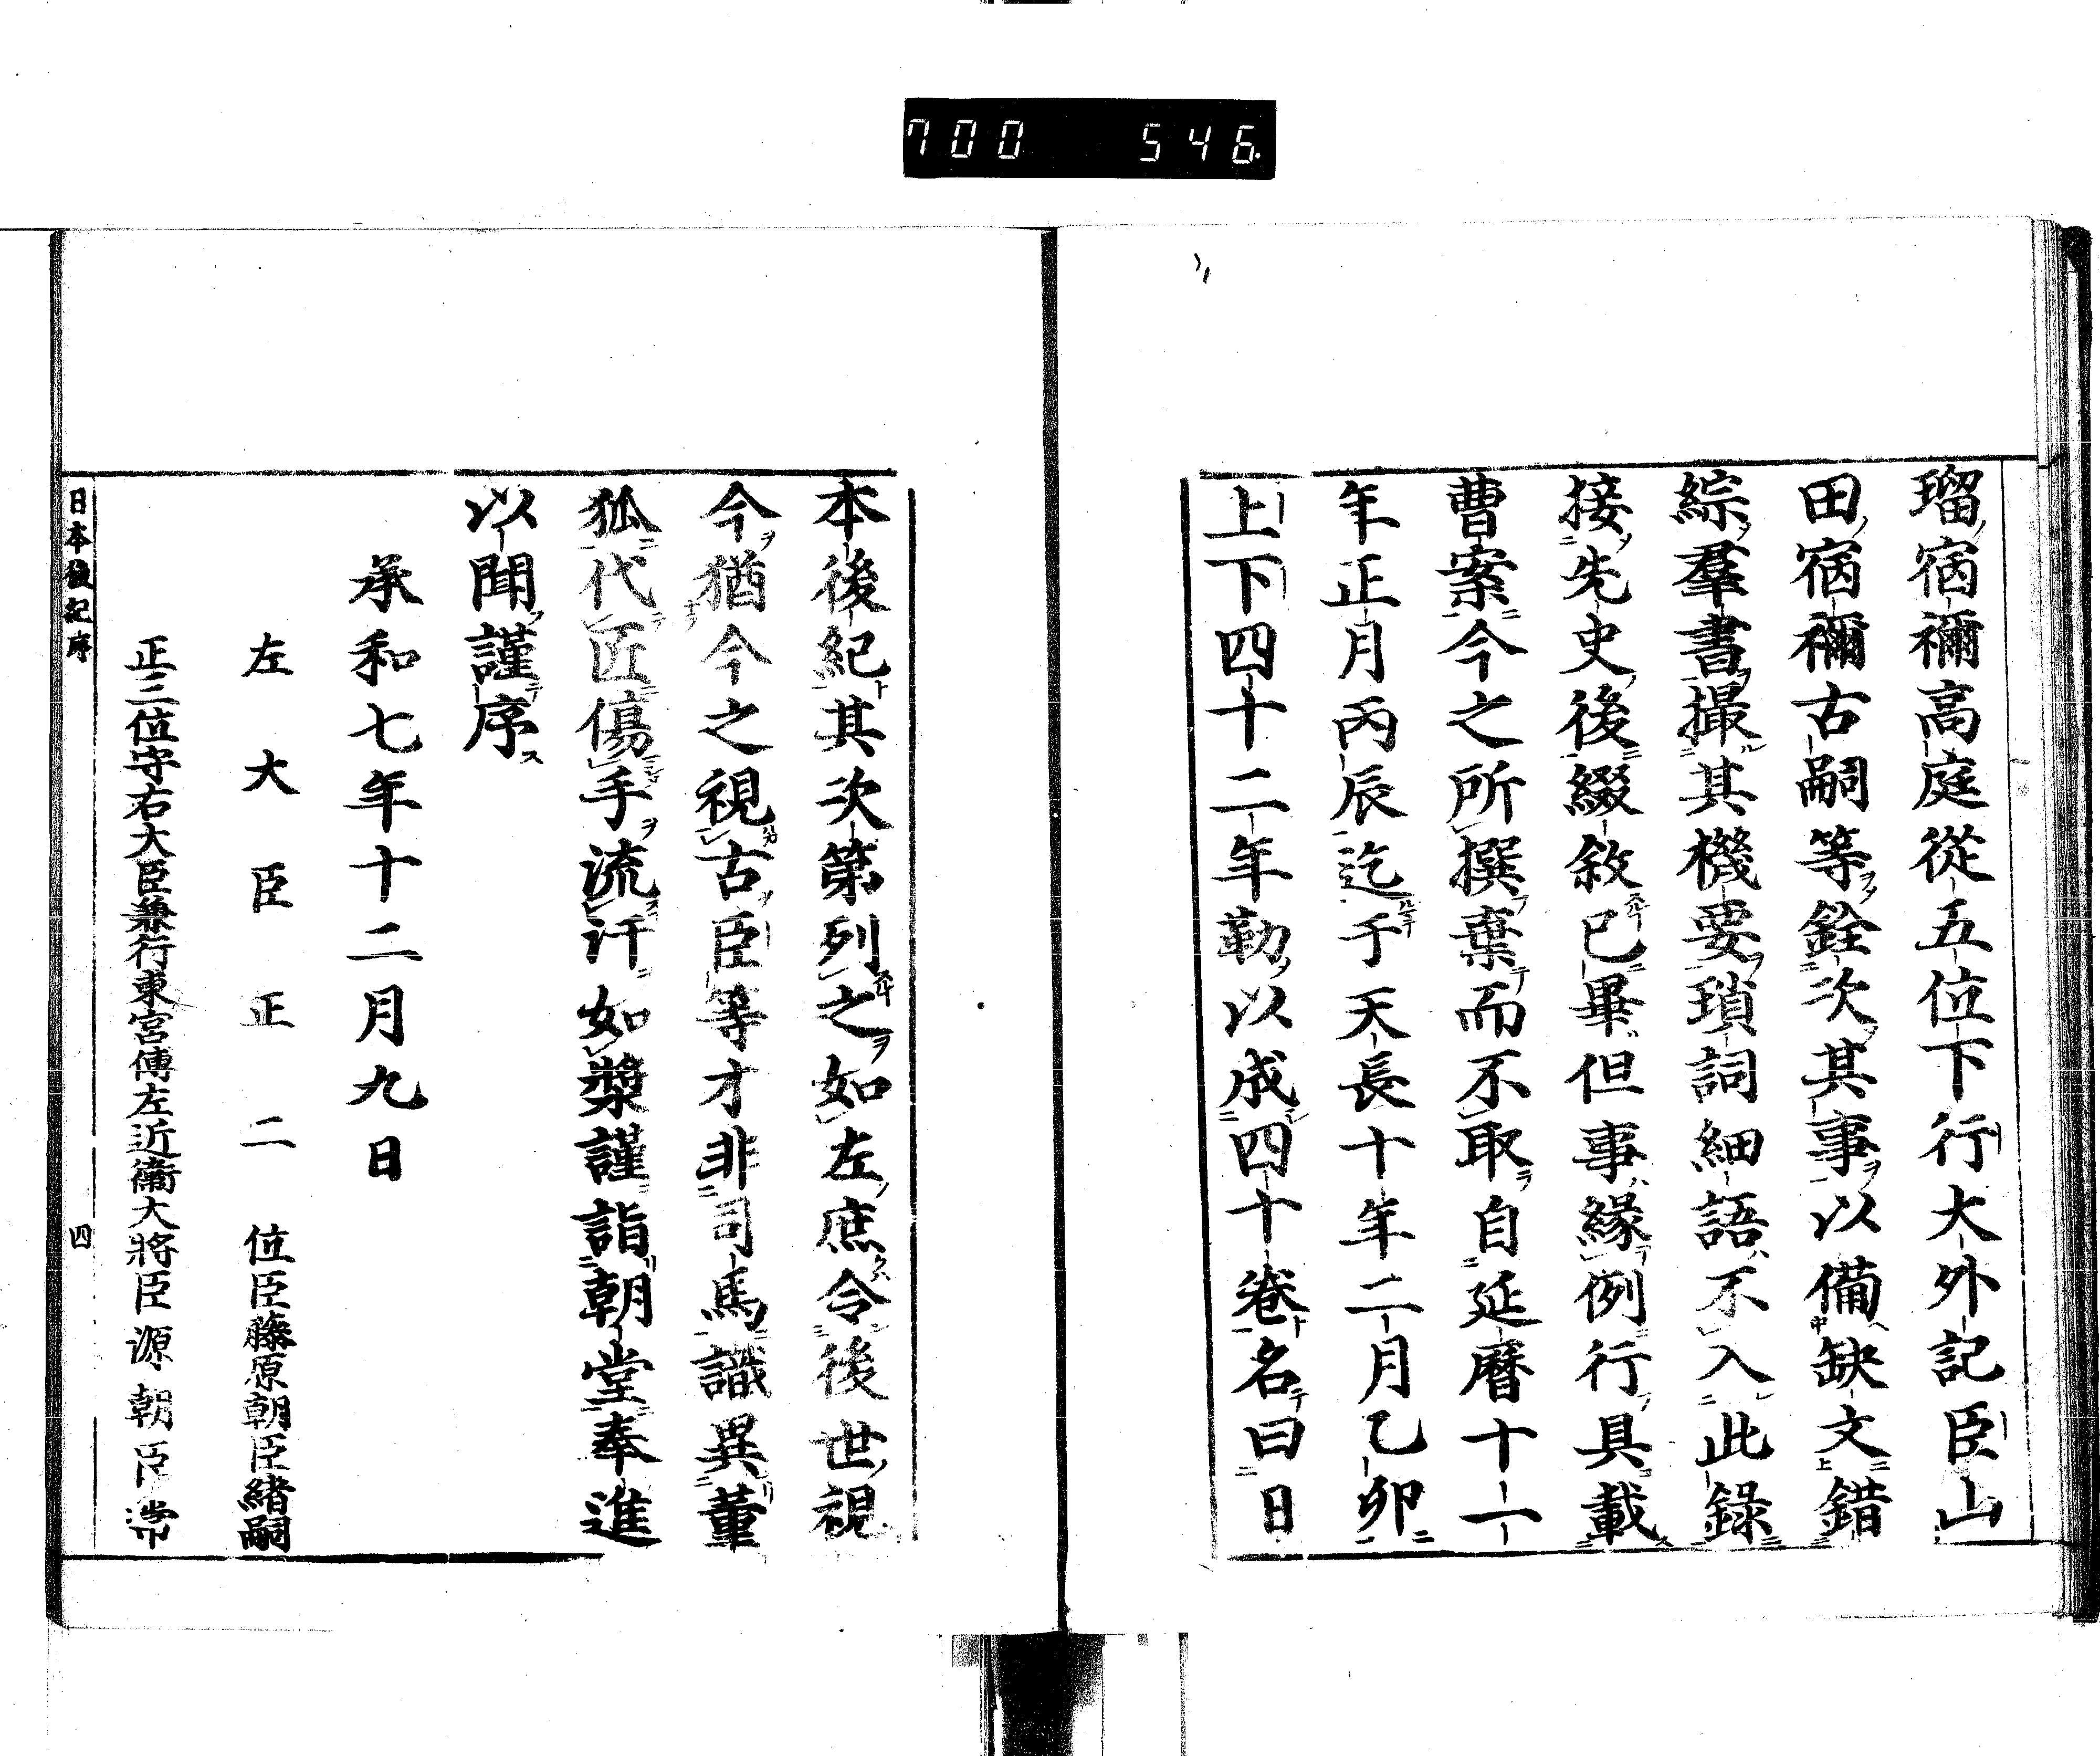 700 546.
瑠宿禰高庭從五位下行大外記臣山
田宿禰古嗣等銓次其事以備缺文錯
綜羣書撮其機要瑣詞細語不入此錄
接先史後綴敘已畢但事緣例行具載
曹案今之所撰棄而不取自延曆十一
年正月丙辰迄于天長十年二月乙卯
上下四十二年勒以成四十卷名曰日
本後紀其次第列之如左庶令後世視
今猶今之視古臣等才非司馬識異董
狐代匠傷手流汗如漿謹詣朝堂奉進
以聞謹序
承和七年十二月九日
左大臣正二位臣藤原朝臣緒嗣
正三位守右大臣兼行東宮傅左近衞大將臣源朝臣常
日本後紀序 四